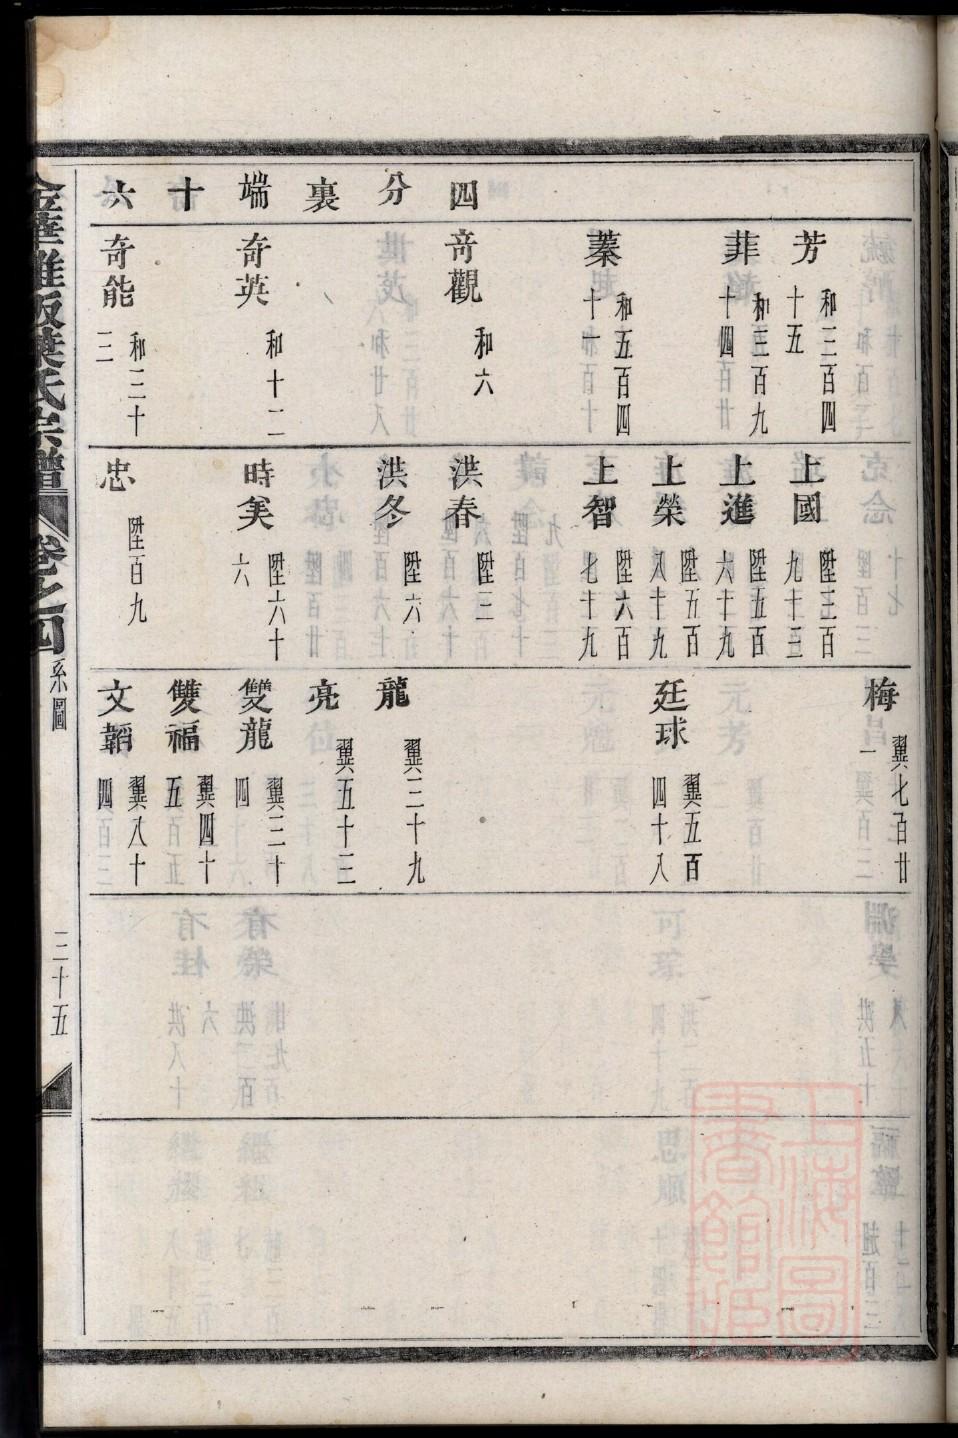 四分裏端十六
芳 和三百四十五
菲 和三百九十四
蓁 和五百四十一
奇觀 和六
奇英 和十二
奇能 和三十三
上國 陞三百九十三
上進 陞五百六十九
上榮 陞五百八十九
上智 陞六百七十九
洪春 陞三
洪冬 陞六
時美 陞六十六
忠 陞百九
梅 翼七百廿一
廷球 翼五百四十八
龍 翼三十九
亮 翼五十三
雙龍 翼三十四
雙福 翼四十五
文韜 翼八十四
宗譜
卷之四
系圖
三十五
上海圖書館藏